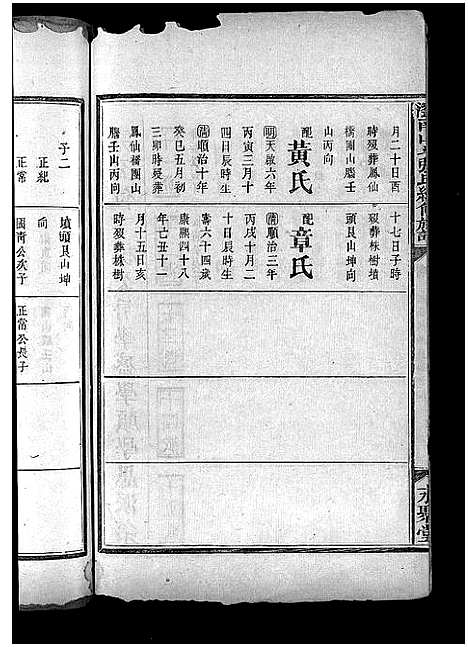 月二十日酉
時歿葬鳳仙
橋團山腦壬
山丙向
配黃氏
明天啟六年
丙寅三月十
四日辰時生
清順治十年
癸巳五月初
三卯時歿葬
鳳仙橋團山
腦壬山丙向
十七日子時
歿葬株樹墳
頭艮山坤向
配章氏
清順治三年
丙戌十月二
十日辰時生
康熙四十八
年己丑十一
月十五日亥
時歿葬株樹
壽六十四歲
永聚堂
墳頭艮山坤
向
子二
正紀
正常
國甯公次子
正常公長子